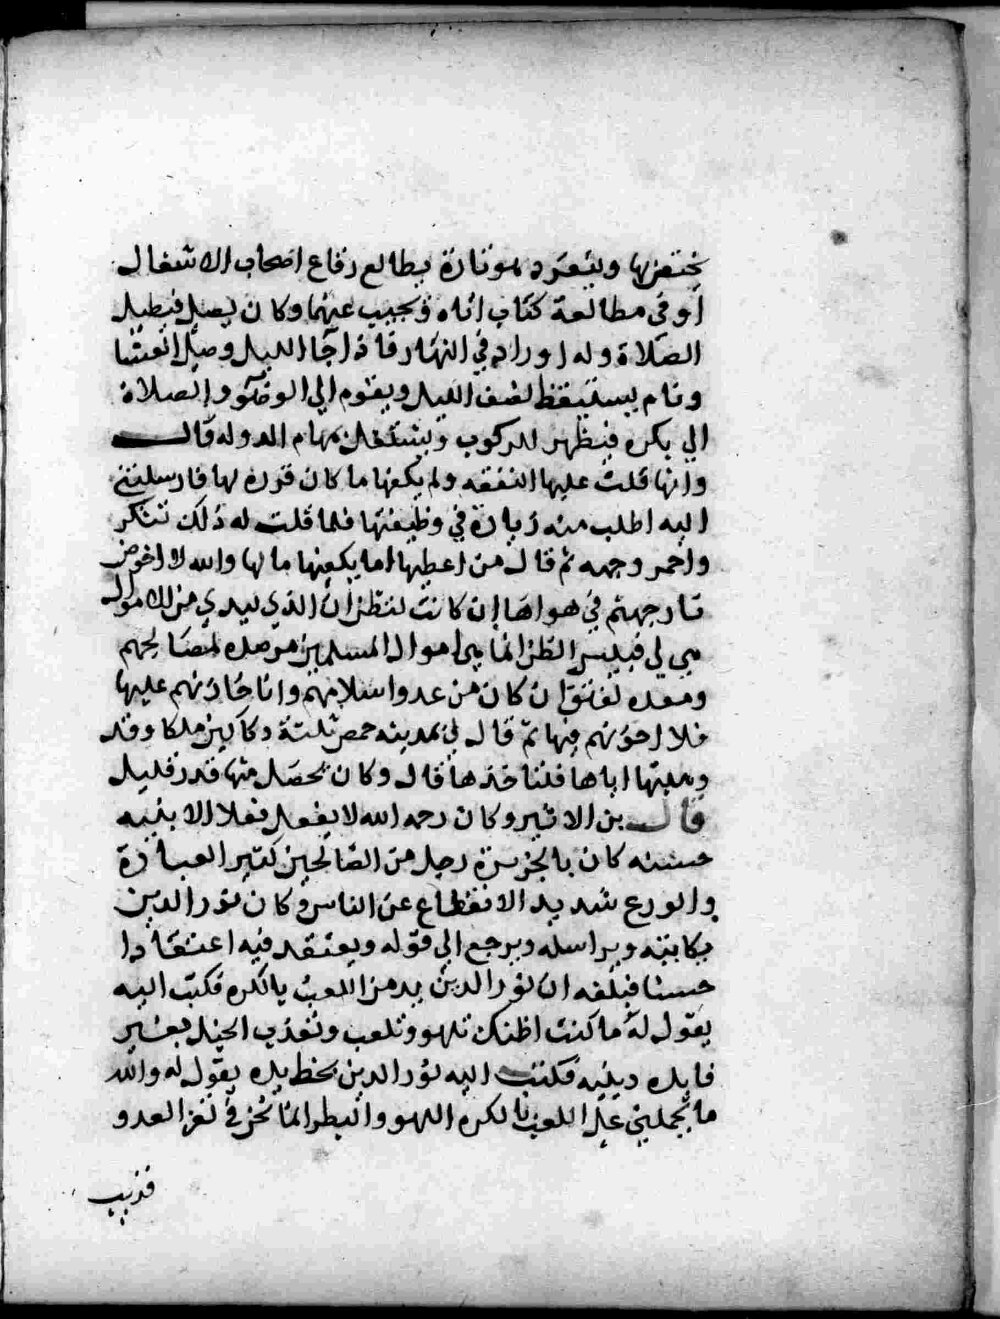 يختصر بها وينفرد هو تارة يطالع رقاع اصحاب الاشغال
او في مطالعة كتاب اتاه ويجيب عنهما وكان يصلي فيطيل
الصلاة وله اوراد في النهار فاذا جا الليل وصلى العشا
ونام يستيقظ نصف الليل ويقوم الى الوضو والصلاة
الي بكره فيظهر للركوب ويشتغل بمهام الدوله قال
وانها قلت عليها النفقه ولم يكفها ما كان قرره لها فارسلتني
اليه اطلب منه زيادة في وظيفتها فلما قلت له ذلك تنكر
واحمر وجهه ثم قال من اعطيها اما يكفيها مالها والله لا اخوض
نار جهنم في هواها ان كانت تظن ان الذي بيدي من الاموال
هي لي فبيس الظن انما هي اموال المسلمين مرصده لمصالحهم
ومعده لفتق ان كان من عدو اسلامهم وانا خازنهم عليها
فلا اخونهم فيها ثم قال لي بمدينه حمص ثلثة دكاكين ملكا وقد
وهبتها اياها فلتاخذها قال وكان يحصل منها قدر قليل
قال بن الاثير وكان رحمه الله لا يفعل فعلا الا بنيه
حسنه كان بالجزيرة رجل من الصالحين كثير العبادة
والورع شديد الانقطاع عن الناس وكان نور الدين
يكاتبه ويراسله ويرجع الي قوله ويعتقد فيه اعتقادا
حسنا فبلغه ان نور الدين يدمن اللعب بالكره فكتب اليه
يقول له ما كنت اظنك تلهو وتلعب وتعذب الخيل بغير
فايده دينيه فكتب اليه نور الدين بخط يده يقول له والله
ما يحملني على اللعب بالكره اللهو والبطر انما نحن في ثغر العدو
قريب